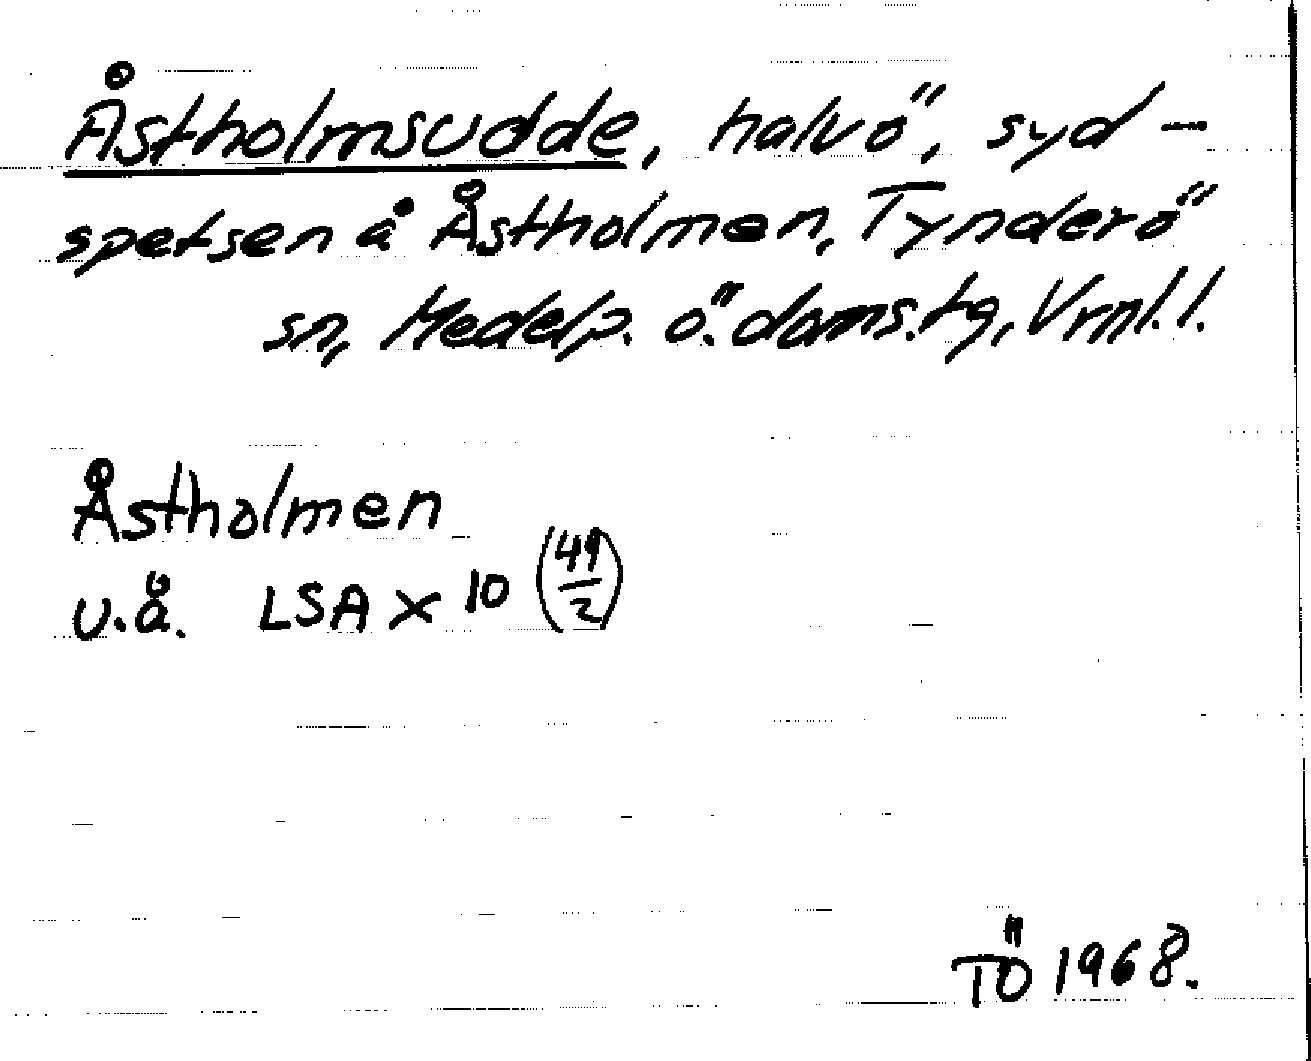 Åstholmsudde, halvö, syd-
spetsen å Åstholmen, Tynderö
sn, Medelp. ö. doms.tg, Vrnl. l.
Åstholmen
u.å. LSA X 10 (49/2)
TÖ 1968.